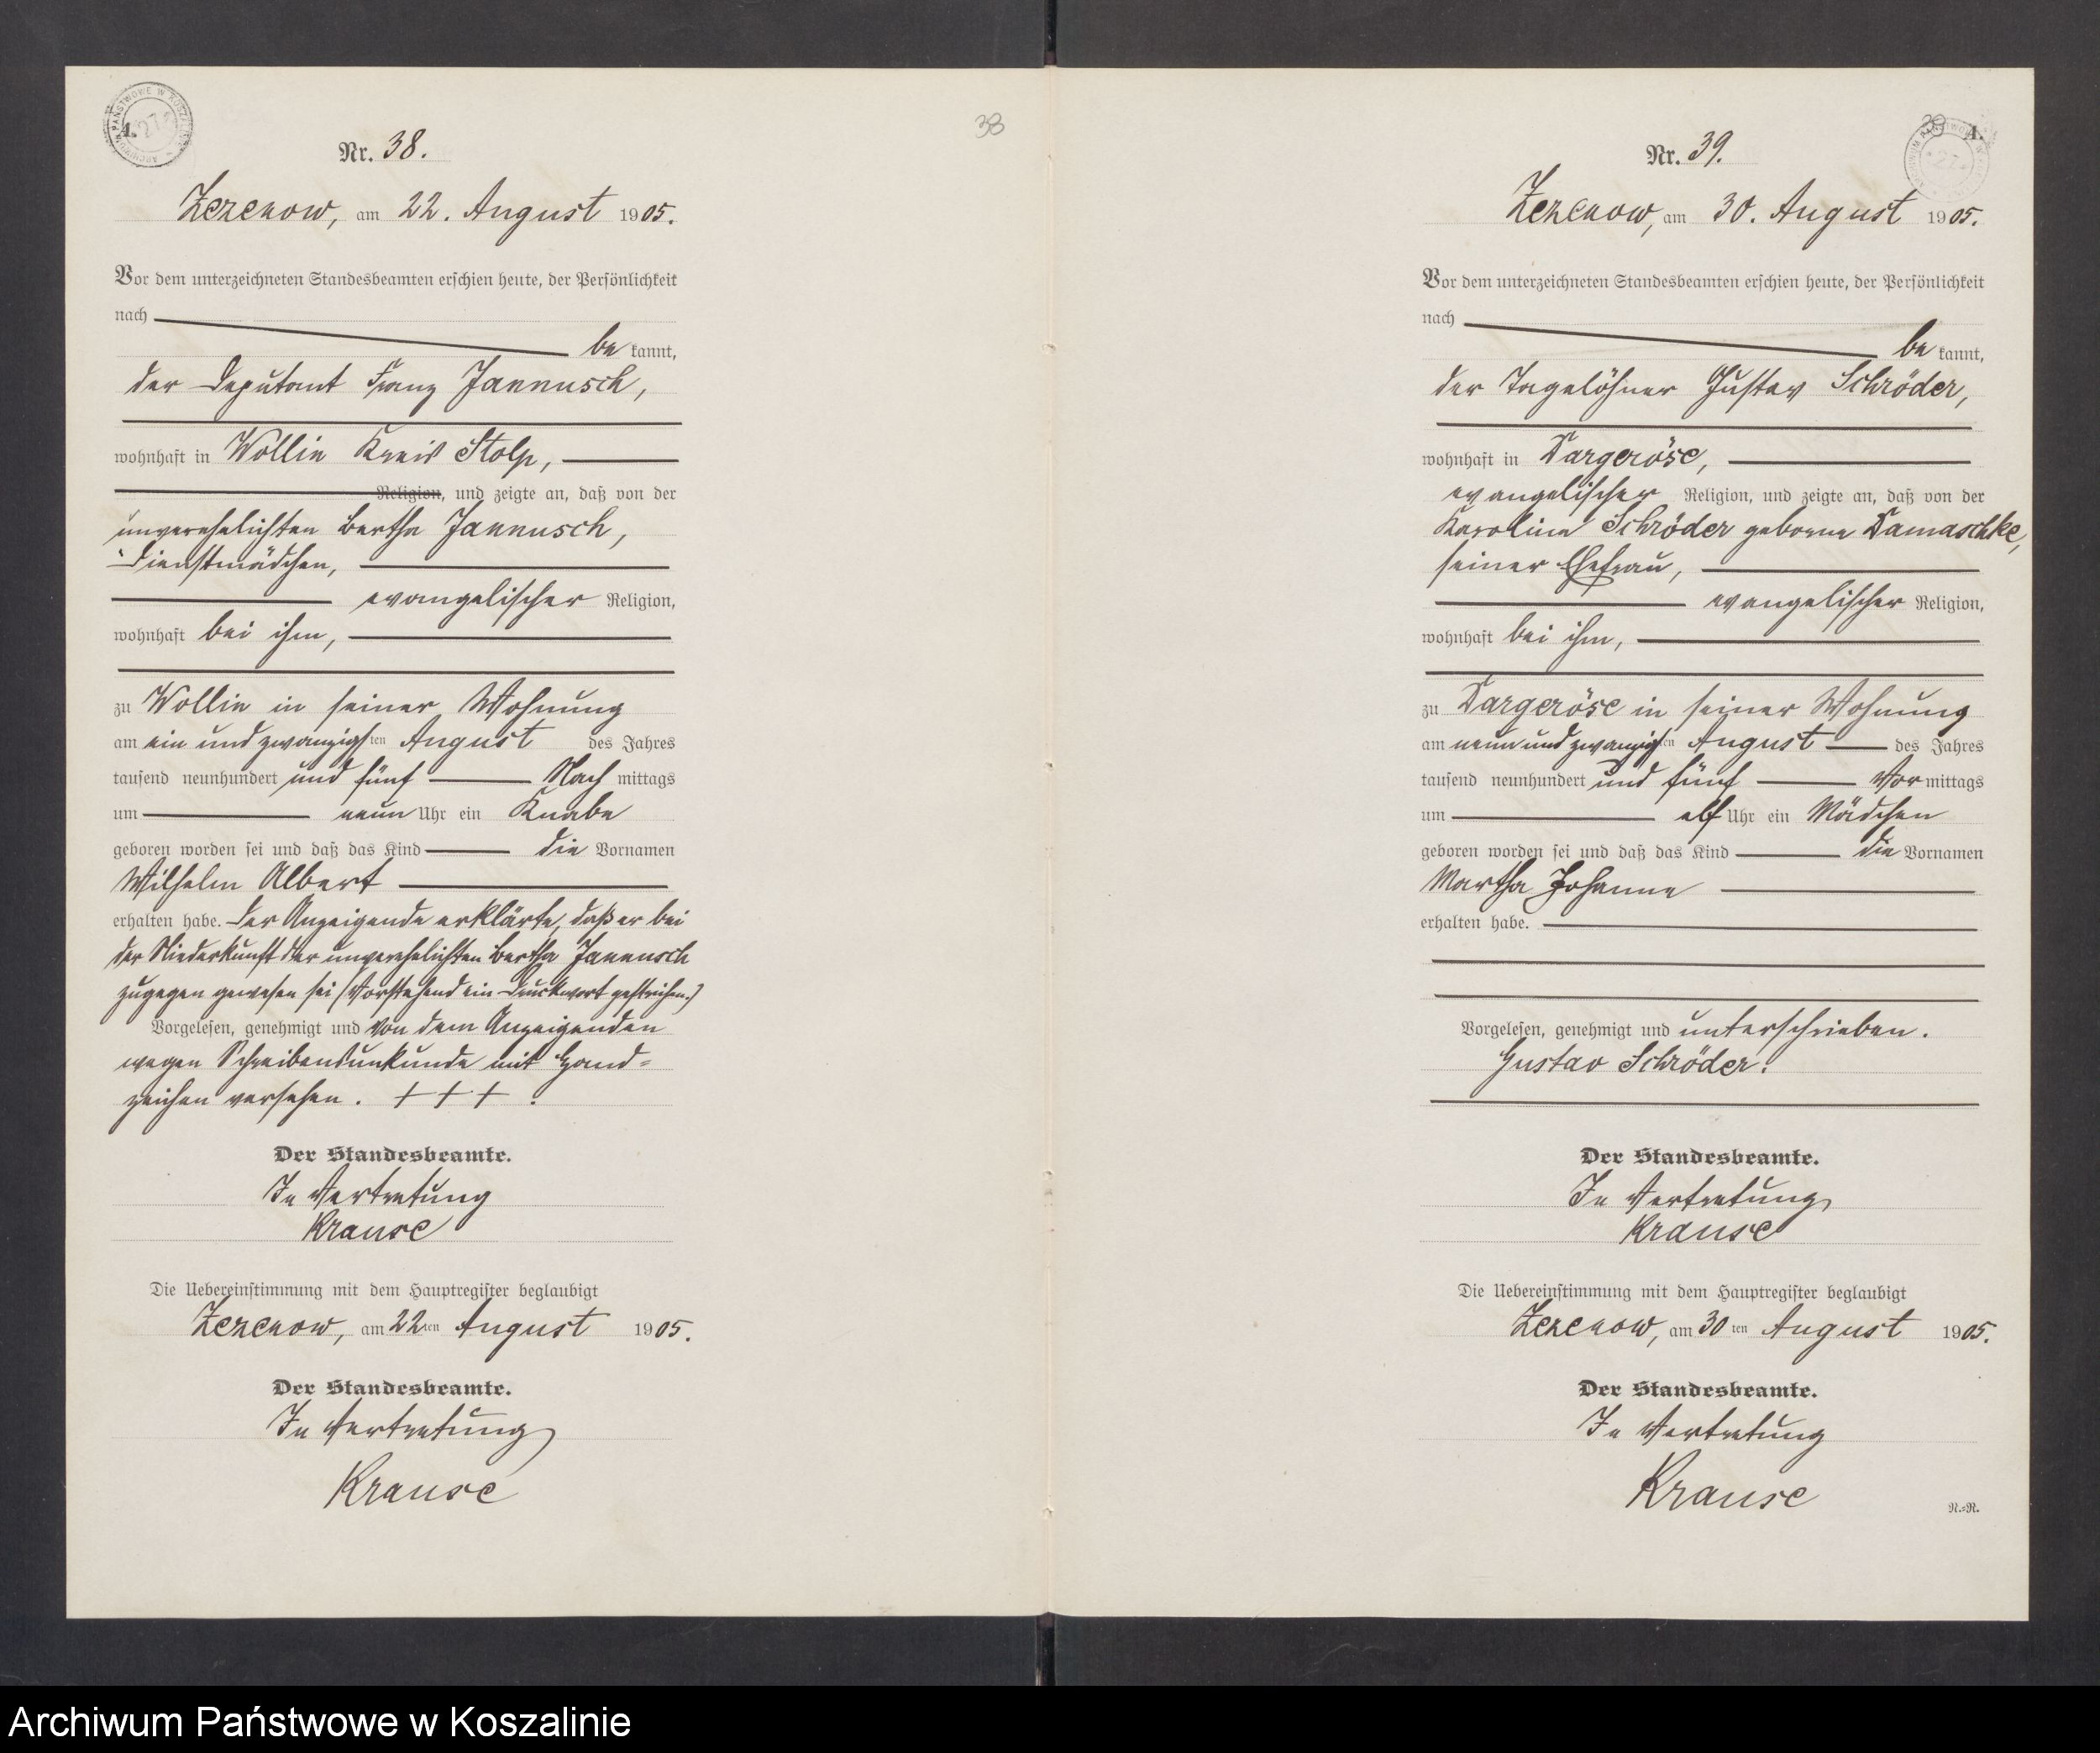 ARCHIWUM PAŃSTWOWE W KOSZALINIE
A.
38
Nr. 38.
Zezenow, am 22. August 1905.
Vor dem unterzeichneten Standesbeamten erschien heute, der Persönlichkeit
nach
be kannt,
der Deputant Franz Jannusch,
wohnhaft in Wollin Kreis Stolp,
Religion, und zeigte an, daß von der
unverehelichten Bertha Jannusch,
Dienstmädchen,
evangelischer Religion,
wohnhaft bei ihm,
zu Wollin in seiner Wohnung
am ein und zwanzigsten August des Jahres
tausend neunhundert und fünf Nach mittags
um neun Uhr ein Knabe
geboren worden sei und daß das Kind die Vornamen
Wilhelm Albert
erhalten habe. Der Anzeigende erklärte, daß er bei
der Niederkunft der unverehelichten Bertha Jannusch
zugegen gewesen sei (Vorstehend ein Druckwort gestrichen.)
Vorgelesen, genehmigt und von dem Anzeigenden
wegen Schreibensunkunde mit Hand=
zeichen versehen. + + + .
Der Standesbeamte.
In Vertretung
Krause
Die Uebereinstimmung mit dem Hauptregister beglaubigt
Zezenow, am 22ten August 1905.
Der Standesbeamte.
In Vertretung
Krause
A.
Nr. 39.
Zezenow, am 30. August 1905.
Vor dem unterzeichneten Standesbeamten erschien heute, der Persönlichkeit
nach
be kannt,
der Tagelöhner Gustav Schröder,
wohnhaft in Dargeröse,
evangelischer Religion, und zeigte an, daß von der
Karoline Schröder geborne Damaschke,
seiner Ehefrau,
evangelischer Religion,
wohnhaft bei ihm,
zu Dargeröse in seiner Wohnung
am neun und zwanzigsten August des Jahres
tausend neunhundert und fünf Vor mittags
um elf Uhr ein Mädchen
geboren worden sei und daß das Kind die Vornamen
Martha Johanne
erhalten habe.
Vorgelesen, genehmigt und unterschrieben.
Gustav Schröder.
Der Standesbeamte.
In Vertretung
Krause
Die Uebereinstimmung mit dem Hauptregister beglaubigt
Zezenow, am 30ten August 1905.
Der Standesbeamte.
In Vertretung
Krause
N.=R.
Archiwum Państwowe w Koszalinie